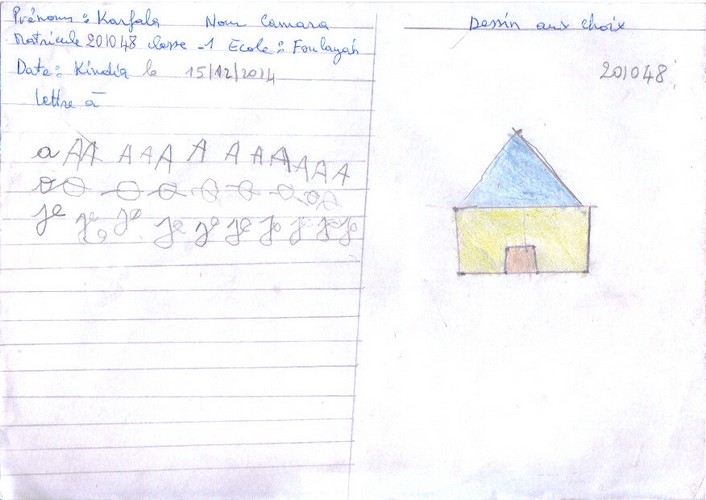 Prénoms : Karfala Nom Camara
Matricule 201048 classe -1 Ecole : Foulayah
Date : Kindia le 15/12/2014
Lettre à
a AA A A A A A A A A A A
Je Je Je Je Je Je Je J Je Je
Dessin aux choix
201048